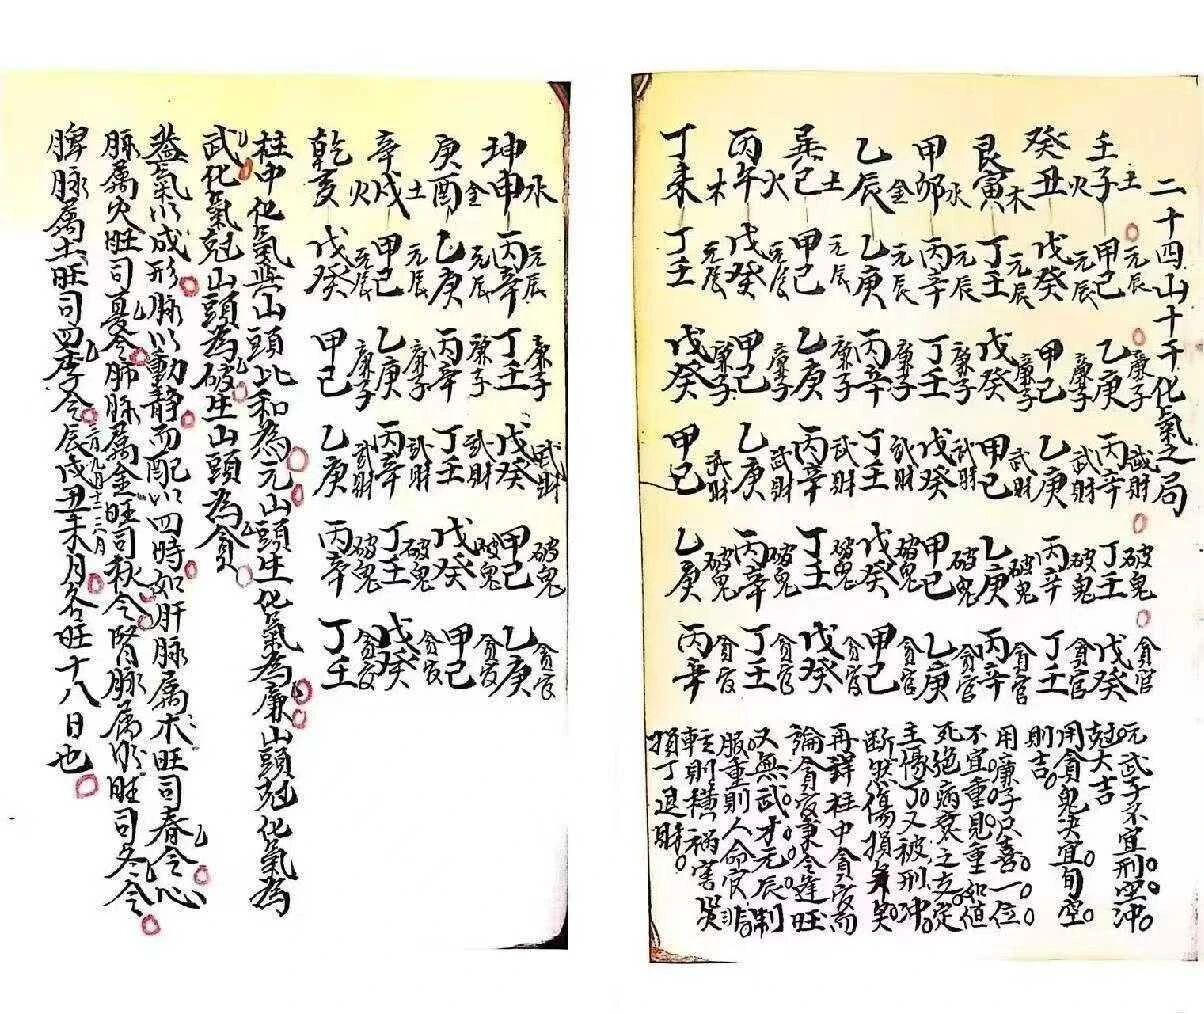 二十四山十干化氣之局
壬子土 甲己元辰 乙庚廉子 丙辛武財 丁壬破鬼 戊癸貪官
癸丑火 戊癸元辰 甲己廉子 乙庚武財 丙辛破鬼 丁壬貪官
艮寅木 丁壬元辰 戊癸廉子 甲己武財 乙庚破鬼 丙辛貪官
甲卯水 丙辛元辰 丁壬廉子 戊癸武財 甲己破鬼 乙庚貪官
乙辰金 乙庚元辰 丙辛廉子 丁壬武財 戊癸破鬼 甲己貪官
巽巳土 甲己元辰 乙庚廉子 丙辛武財 丁壬破鬼 戊癸貪官
丙午火 戊癸元辰 甲己廉子 乙庚武財 丙辛破鬼 丁壬貪官
丁未木 丁壬元辰 戊癸廉子 甲己武財 乙庚破鬼 丙辛貪官
元武子不宜刑空沖
尅大吉
用貪鬼决宜旬空
則吉
用廉子只喜一位
不宜重見重和值
死絕病衰之支定
主傷丁又被刑沖
断然傷損
再詳柱中貪官而
論貪官秉令逢旺
又無武才元辰制
服重則人命官非
輕則橫禍害
損丁退財
坤申水 丙辛元辰 丁壬廉子 戊癸武財 甲己破鬼 乙庚貪官
庚酉金 乙庚元辰 丙辛廉子 丁壬武財 戊癸破鬼 甲己貪官
辛戌土 甲己元辰 乙庚廉子 丙辛武財 丁壬破鬼 戊癸貪官
乾亥火 戊癸元辰 甲己廉子 乙庚武財 丙辛破鬼 丁壬貪官
柱中化氣與山頭比和為元山頭生化氣為廉山頭尅化氣為
武化氣尅山頭為破生山頭為貪
蓋氣以成形脉以動靜而配以四時如肝脉屬木旺司春令心
脉屬火旺司夏令肺脉屬金旺司秋令腎脉屬水旺司冬令
脾脉屬土旺司四季令辰戌丑未月各旺十八日也